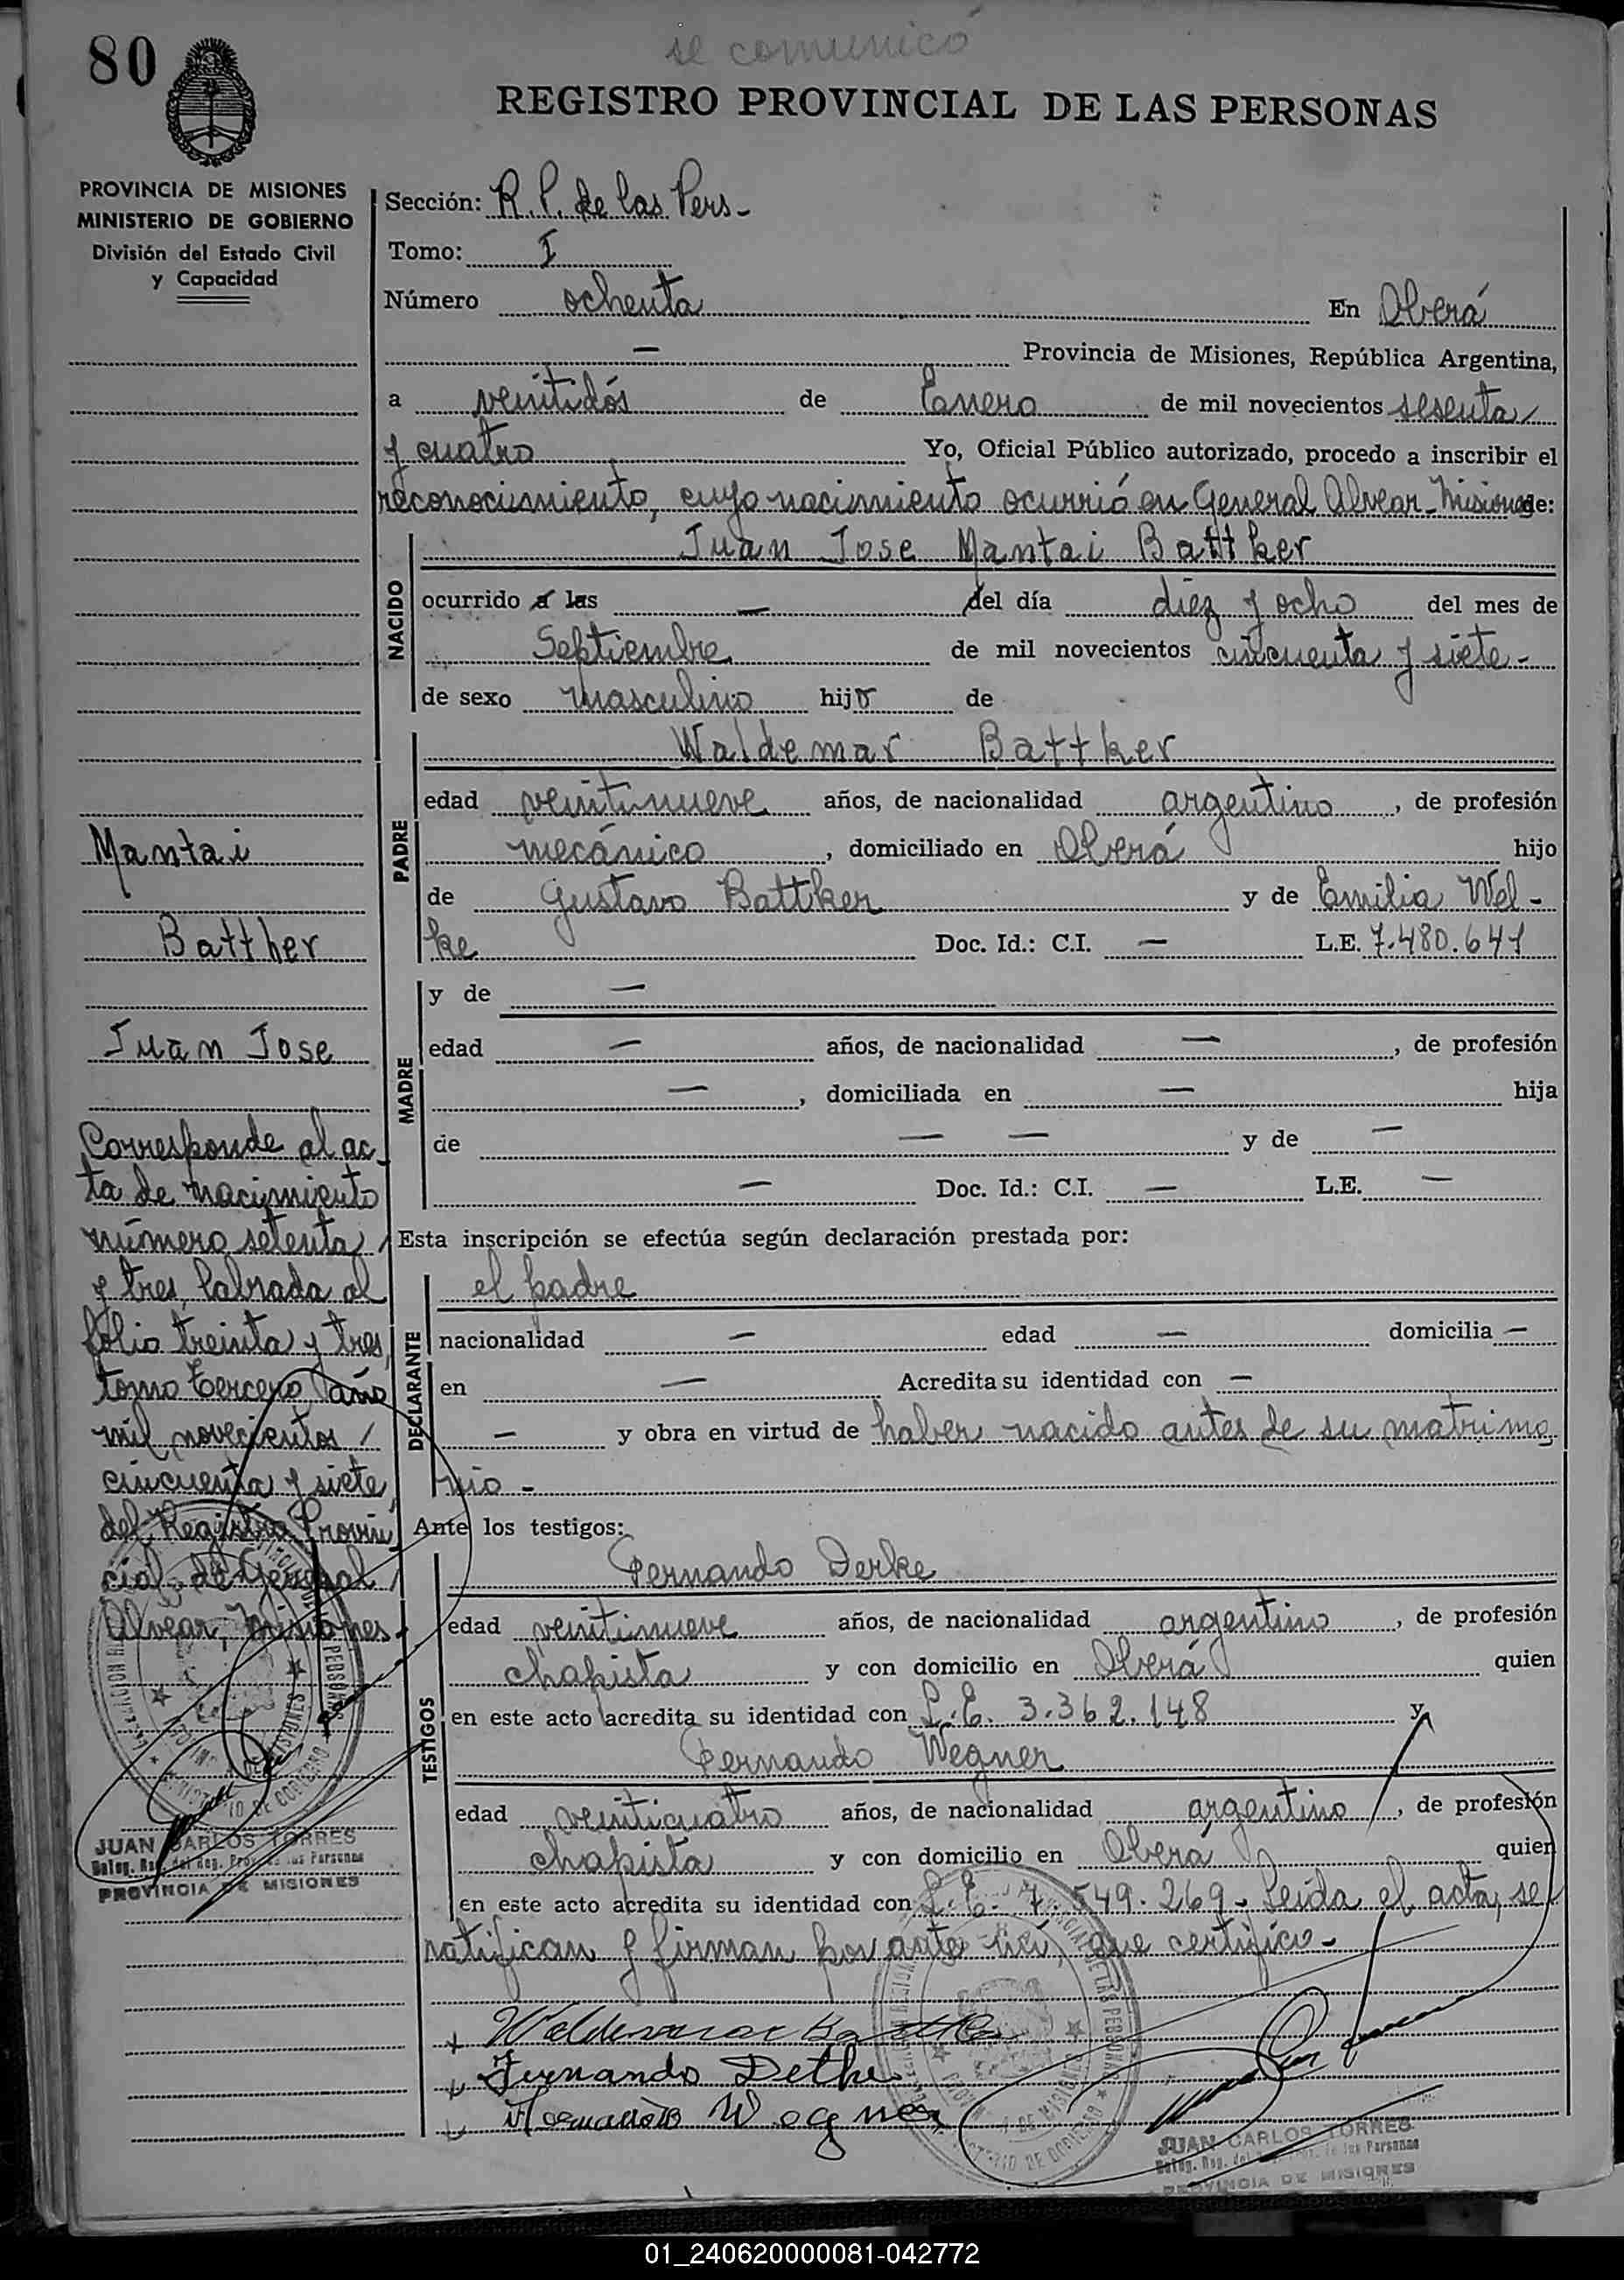 80
se comunicó
REGISTRO PROVINCIAL DE LAS PERSONAS
PROVINCIA DE MISIONES
MINISTERIO DE GOBIERNO
División del Estado Civil
y Capacidad
Sección: R. P. de las Pers-
Tomo: I
Número ochenta En Oberá
— Provincia de Misiones, República Argentina,
a veintidós de Enero de mil novecientos sesenta
y cuatro Yo, Oficial Público autorizado, procedo a inscribir el
reconocimiento, cuyo nacimiento ocurrió en General Alvear-Misiones de:
NACIDO
Juan Jose Mantai Battker
ocurrido a las — del día diez y ocho del mes de
Septiembre de mil novecientos cincuenta y siete-
de sexo masculino hijo de
PADRE
Waldemar Battker
edad veintinueve años, de nacionalidad argentino, de profesión
mecánico, domiciliado en Oberá hijo
de Gustavo Battker y de Emilia Wel-
ke Doc. Id.: C.I. — L.E. 7.480.641
MADRE
y de —
edad — años, de nacionalidad —, de profesión
—, domiciliada en — hija
de — — y de —
— Doc. Id.: C.I. — L.E. —
Esta inscripción se efectúa según declaración prestada por:
DECLARANTE
el padre
nacionalidad — edad — domicilia —
en — Acredita su identidad con —
— y obra en virtud de haber nacido antes de su matrimo
nio -
Ante los testigos:
TESTIGOS
Fernando Derke
edad veintinueve años, de nacionalidad argentino, de profesión
chapista y con domicilio en Oberá quien
en este acto acredita su identidad con L.E. 3.362.148 y
Fernando Wegner
edad veinticuatro años, de nacionalidad argentino, de profesión
chapista y con domicilio en Oberá quien
en este acto acredita su identidad con L.E. 7.549.269- Leída el acta, se
ratifican y firman por ante mí, que certifico-
Waldemar Battker
Fernando Dethe
Wegner
JUAN CARLOS TORRES
PROVINCIA DE MISIONES
Mantai
Batther
Juan Jose
Corresponde al ac-
ta de nacimiento
número setenta
y tres, labrada al
folio treinta y tres,
tomo tercero, año
mil novecientos
cincuenta y siete,
del Registro Provin
cial de General
Alvear, Misiones.
JUAN CARLOS TORRES
Deleg. Reg. del Reg. Prov. de las Personas
PROVINCIA DE MISIONES
01_240620000081-042772